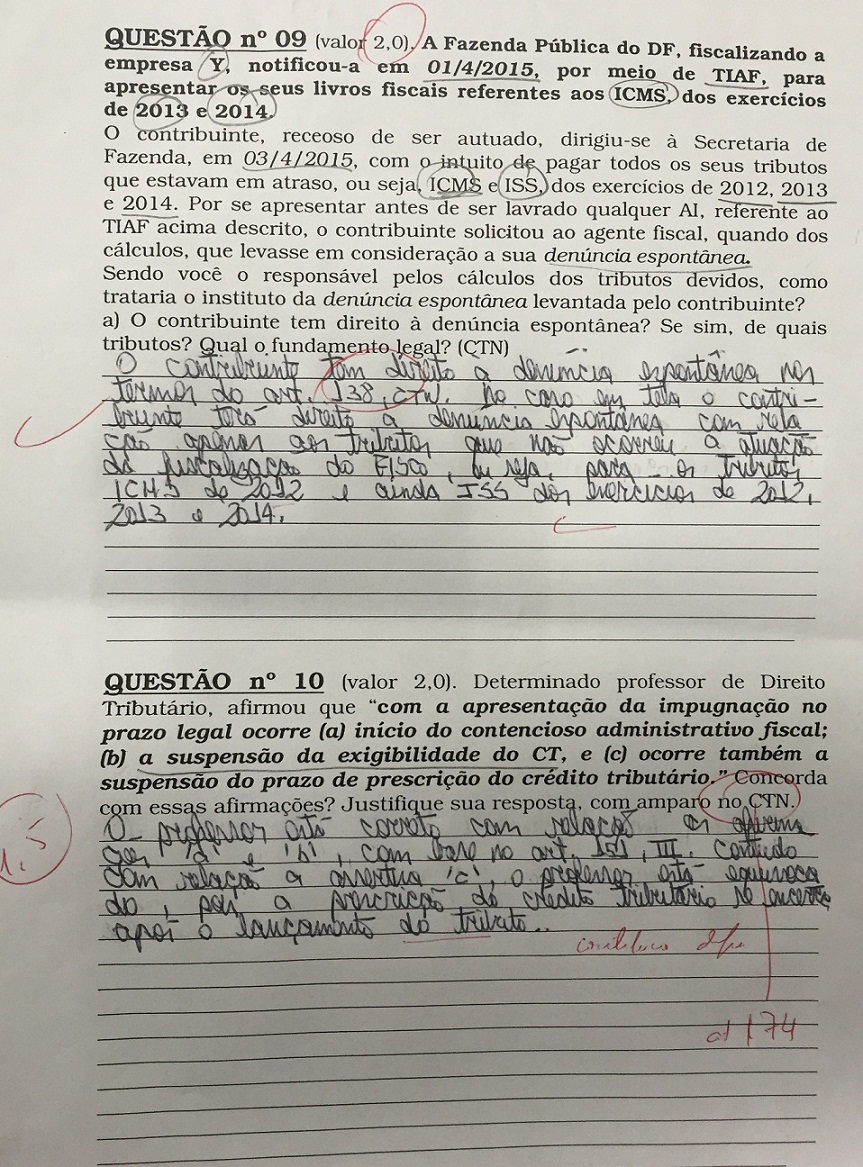 QUESTÃO nº 09 (valor 2,0). A Fazenda Pública do DF, fiscalizando a
empresa Y, notificou-a em 01/4/2015, por meio de TIAF, para
apresentar os seus livros fiscais referentes aos ICMS, dos exercícios
de 2013 e 2014.
O contribuinte, receoso de ser autuado, dirigiu-se à Secretaria de
Fazenda, em 03/4/2015, com o intuito de pagar todos os seus tributos
que estavam em atraso, ou seja, ICMS e ISS, dos exercícios de 2012, 2013
e 2014. Por se apresentar antes de ser lavrado qualquer AI, referente ao
TIAF acima descrito, o contribuinte solicitou ao agente fiscal, quando dos
cálculos, que levasse em consideração a sua denúncia espontânea.
Sendo você o responsável pelos cálculos dos tributos devidos, como
trataria o instituto da denúncia espontânea levantada pelo contribuinte?
a) O contribuinte tem direito à denúncia espontânea? Se sim, de quais
tributos? Qual o fundamento legal? (CTN)
O contribuinte tem direito a denúncia espontânea nos
termos do art. 138, CTN. No caso em tela o contri-
buinte terá direito a denuncia espontânea com rela
ção apenas aos tributos que não ocorreu a atuação
da fiscalização do FISCO, ou seja, para os tributos
ICMS de 2012 e ainda ISS dos exercícios de 2012,
2013 e 2014.
QUESTÃO nº 10 (valor 2,0). Determinado professor de Direito
Tributário, afirmou que “com a apresentação da impugnação no
prazo legal ocorre (a) início do contencioso administrativo fiscal;
(b) a suspensão da exigibilidade do CT, e (c) ocorre também a
suspensão do prazo de prescrição do crédito tributário.” Concorda
com essas afirmações? Justifique sua resposta, com amparo no CTN.
1,5
O professor está correto com relação as afirma
ções 'a' e 'b', com base no art. 151, III. Contudo
com relação a assertiva 'c', o professor está equivoca
do, pois a prescrição do crédito tributário se encerra
após o lançamento do tributo.
art 174